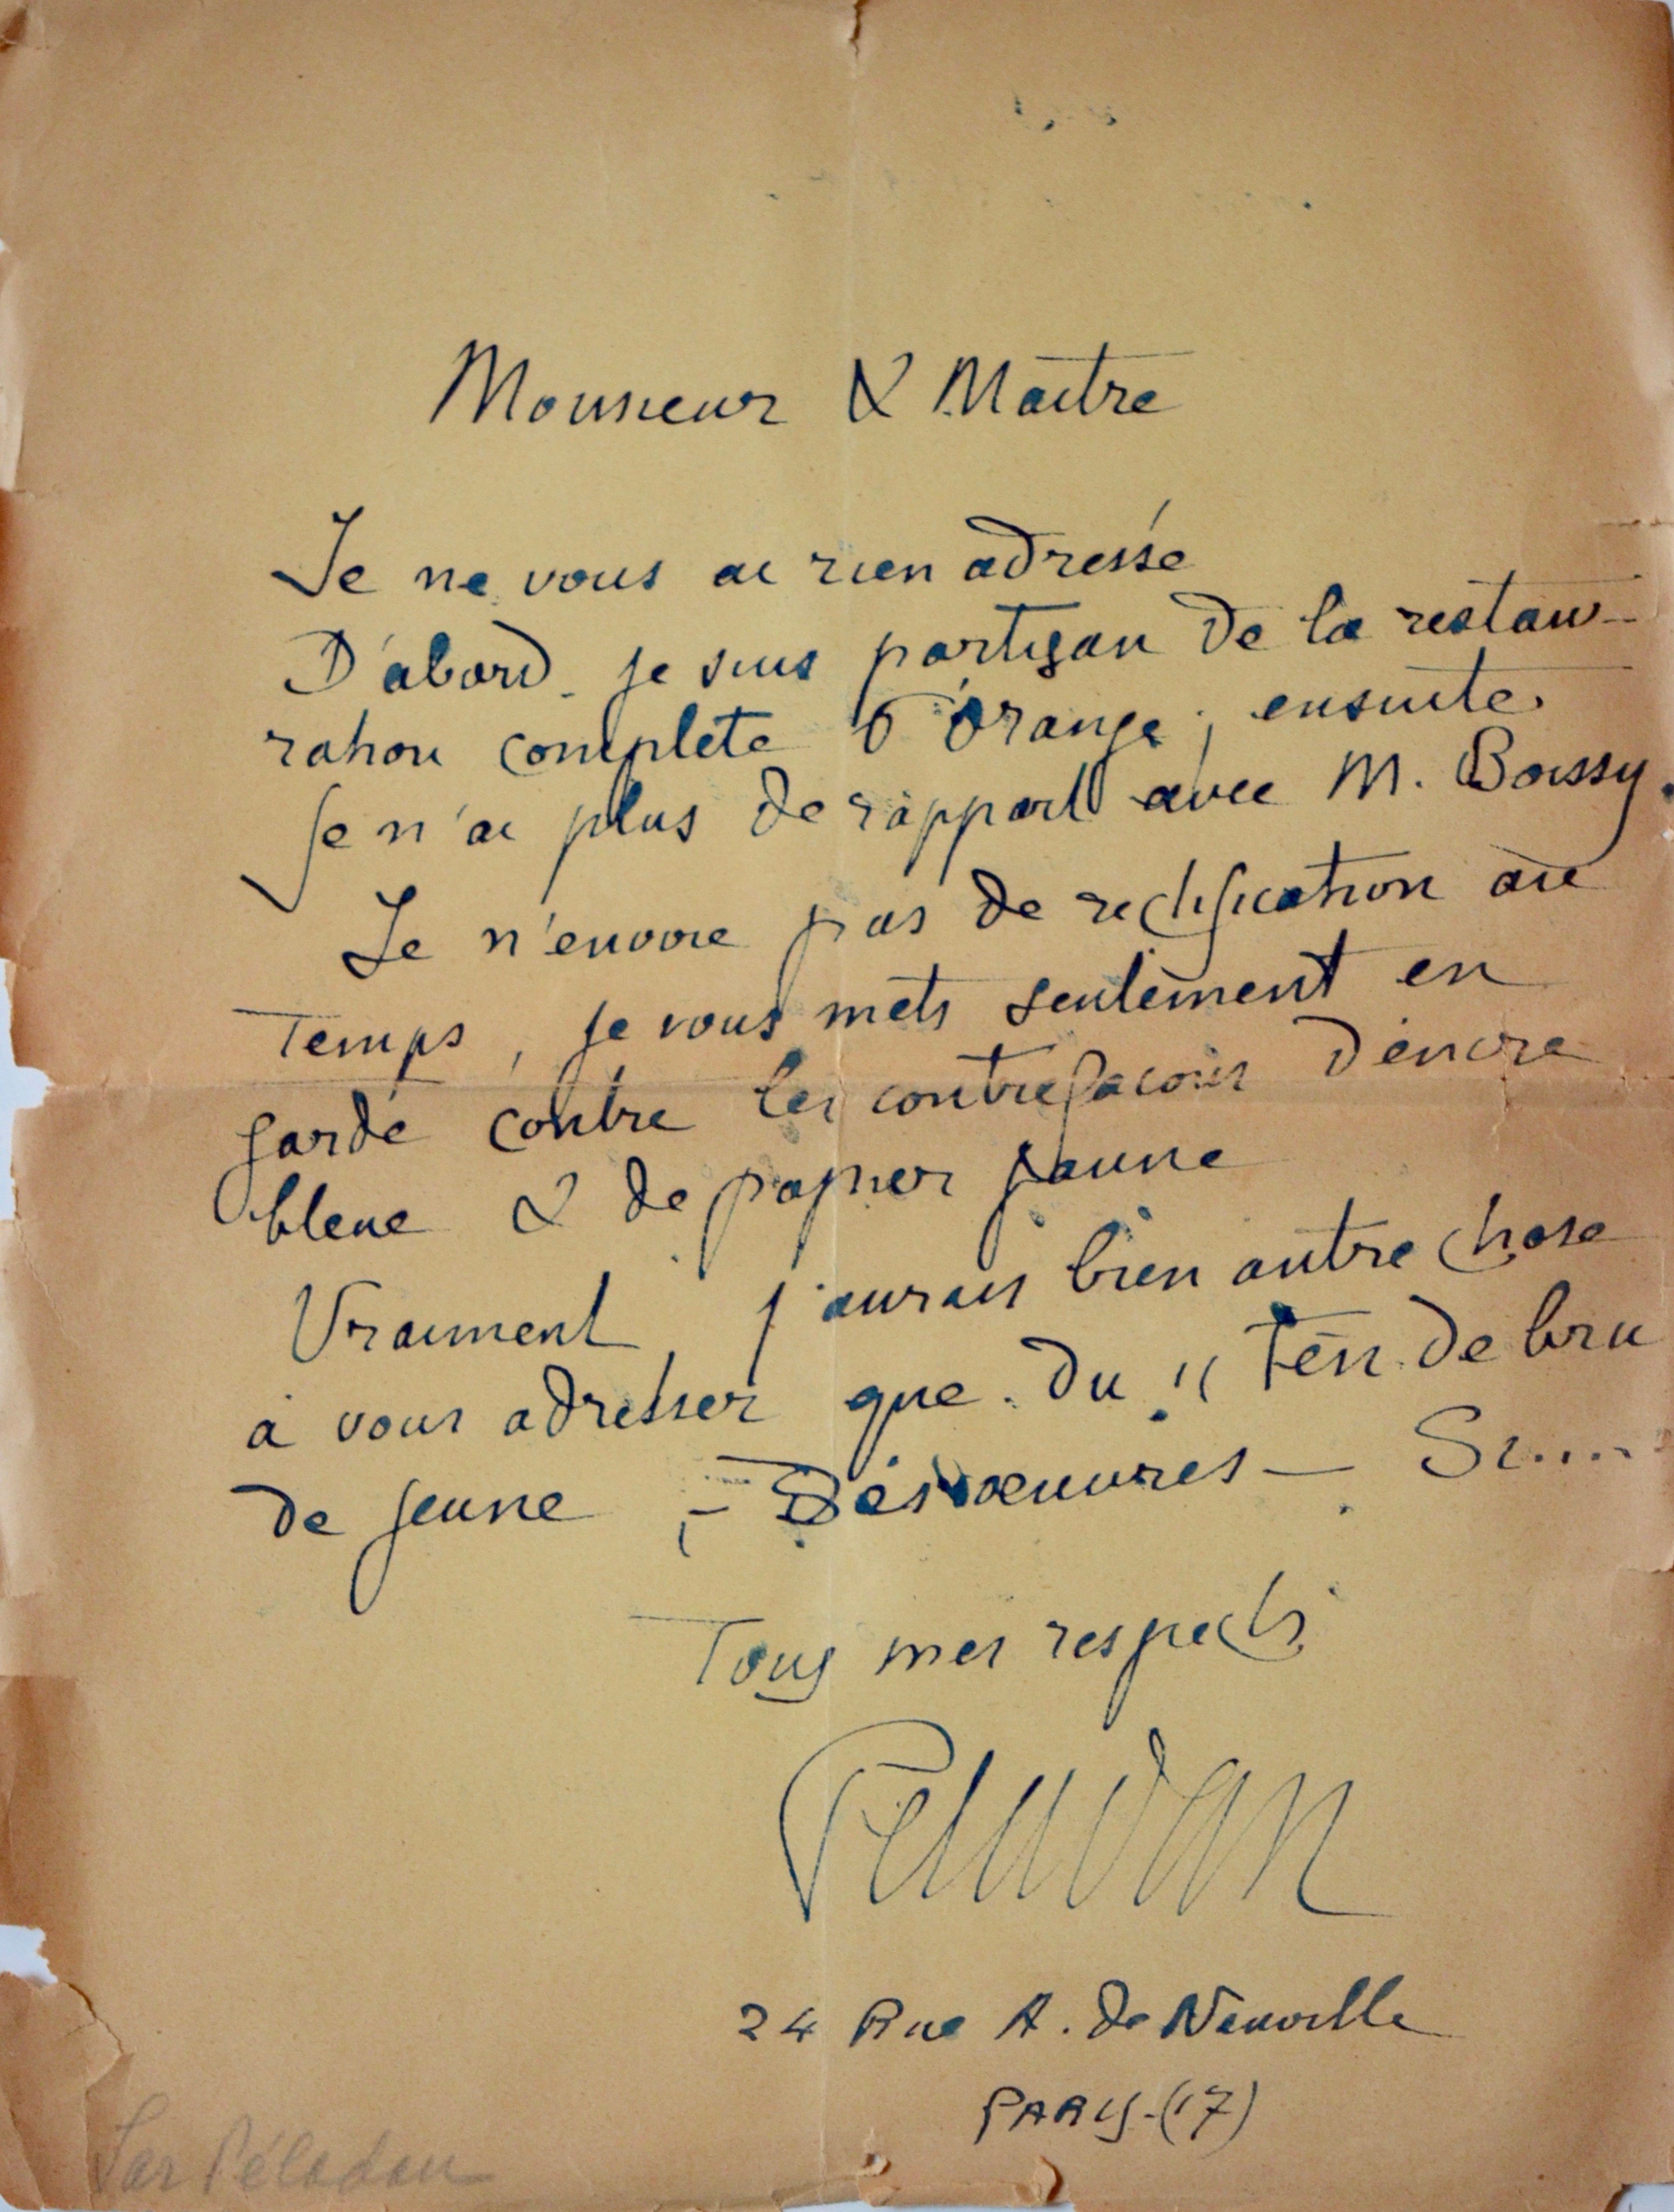 Monsieur & Maître
Je ne vous ai rien adressé
D'abord je suis partisan de la restau-
ration complète d'Orange ; ensuite
je n'ai plus de rapport avec M. Boissy.
Je n'envoie pas de rectification au
Temps, je vous mets seulement en
garde contre les contrefaçons d'encre
bleue & de papier jaune
Vraiment, j'aurais bien autre chose
à vous adresser que du "
de jeune, - Désœuvres — Si....
Tous mes respects
Peladan
24 Rue A. de Neuville
PARIS-(17)
Sar Péladan